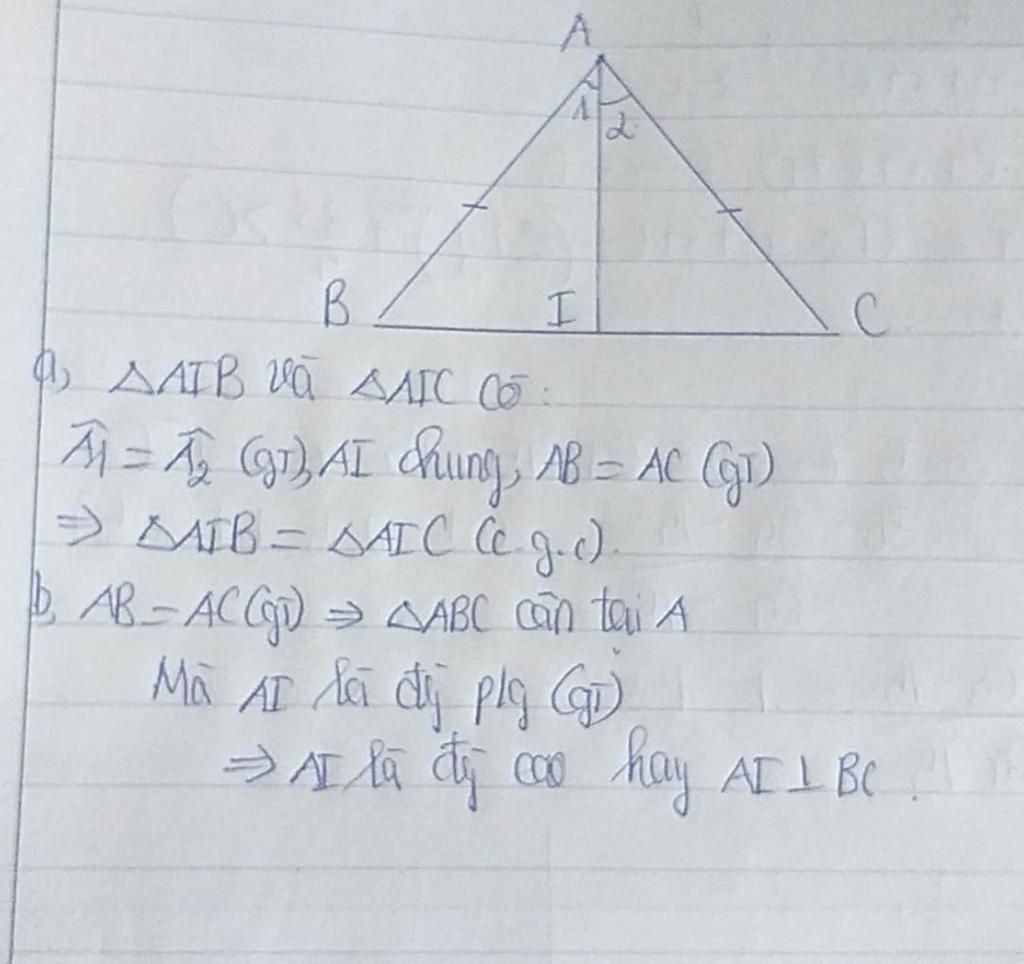 A
1 2
B I C
a, △AIB và △AIC có:
Â1 = Â2 (gt), AI chung, AB = AC (gt)
⇒ △AIB = △AIC (c.g.c).
b, AB = AC (gt) ⇒ △ABC cân tại A
Mà AI là đg plg (gt)
⇒ AI là đg cao hay AI ⊥ BC.